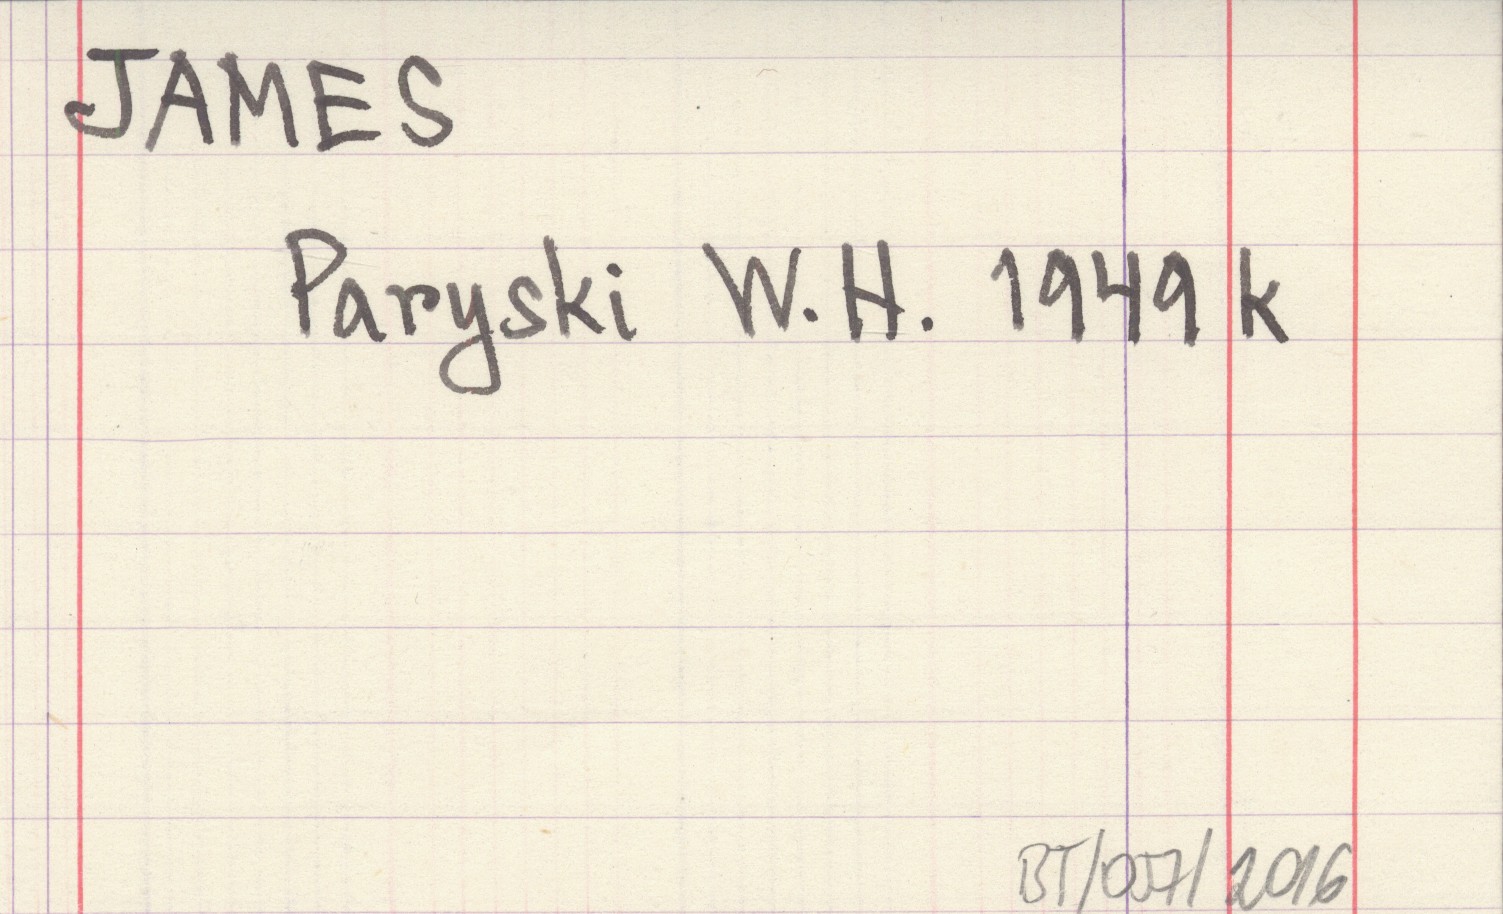 JAMES
Paryski W.H. 1949 k
BT/057/2016